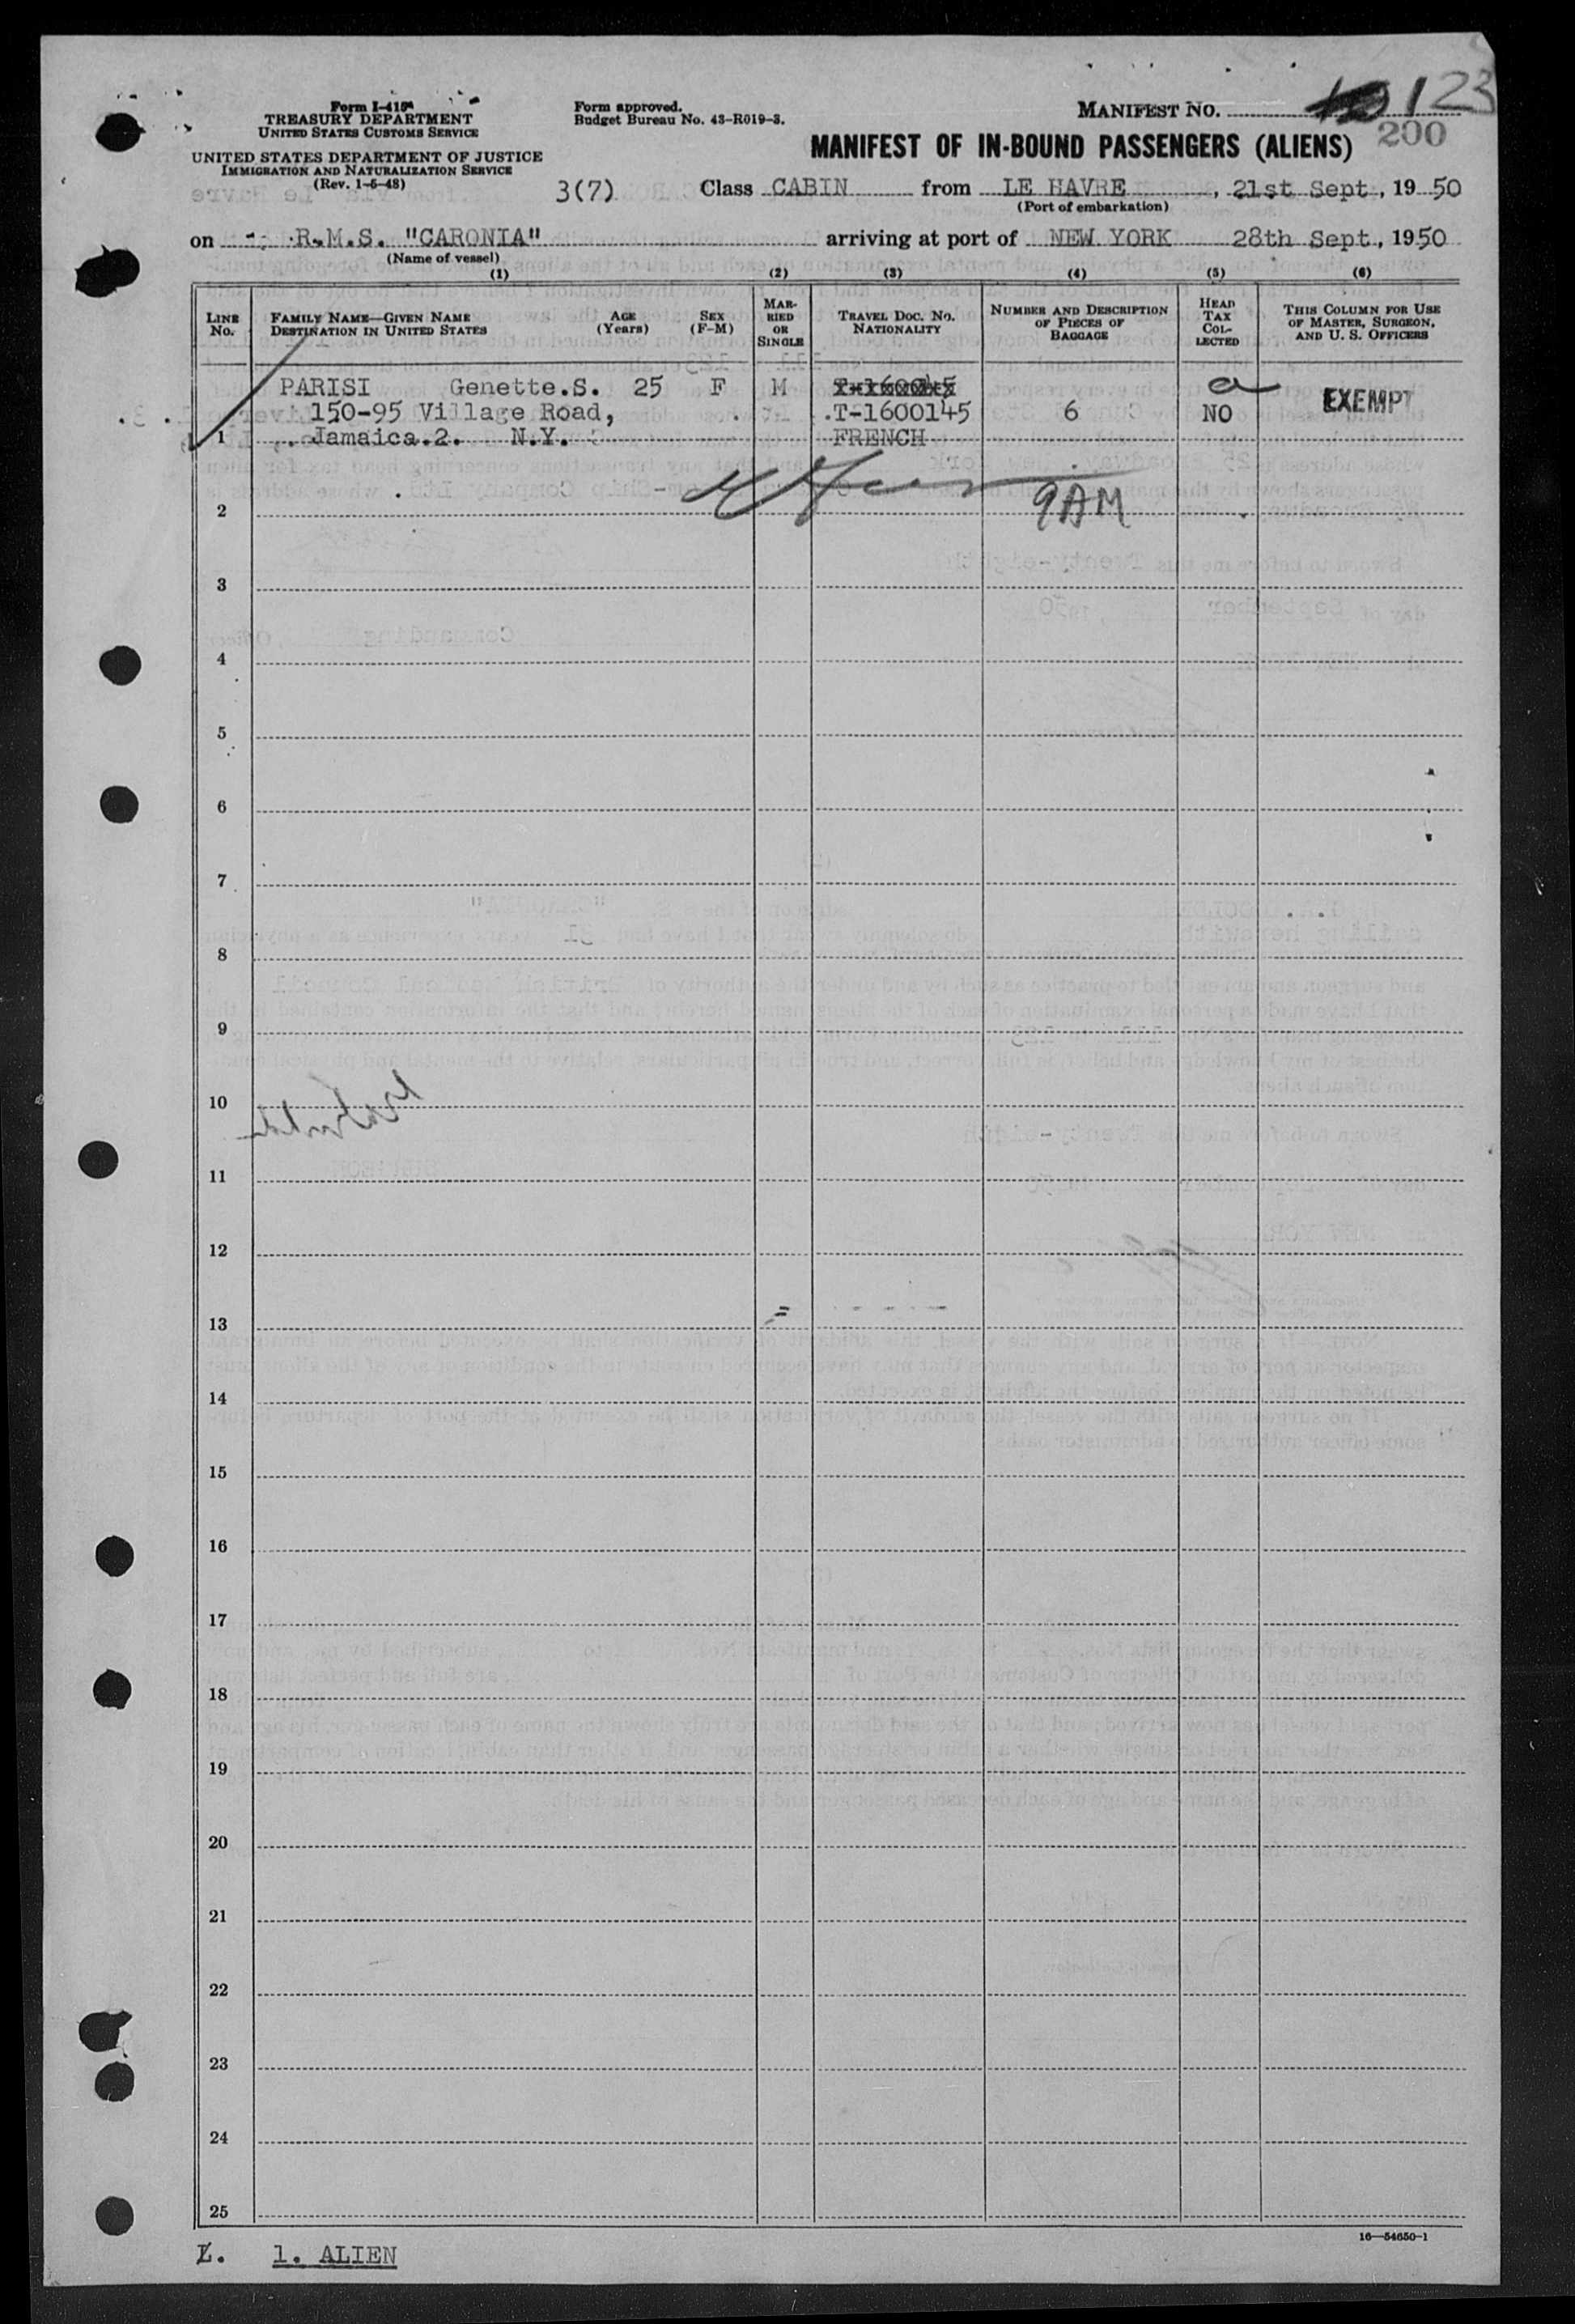 Form I-415A
TREASURY DEPARTMENT
UNITED STATES CUSTOMS SERVICE
UNITED STATES DEPARTMENT OF JUSTICE
IMMIGRATION AND NATURALIZATION SERVICE
(Rev. 1-6-48)
Form approved.
Budget Bureau No. 43-R019-3.
MANIFEST NO. 123
200
MANIFEST OF IN-BOUND PASSENGERS (ALIENS)
3(7) Class CABIN from LE HAVRE, 21st Sept, 1950
(Port of embarkation)
on R.M.S. "CARONIA" arriving at port of NEW YORK 28th Sept, 1950
(Name of vessel)
(1) (2) (3) (4) (5) (6)
LINE No. FAMILY NAME—GIVEN NAME DESTINATION IN UNITED STATES AGE (Years) SEX (F-M) MARRIED OR SINGLE TRAVEL DOC. NO. NATIONALITY NUMBER AND DESCRIPTION OF PIECES OF BAGGAGE HEAD TAX COLLECTED THIS COLUMN FOR USE OF MASTER, SURGEON, AND U. S. OFFICERS
PARISI Genette.S. 25 F M EXEMPT
150-95 Village Road, T-1600145 6 NO
1 Jamaica.2. N.Y. FRENCH
2 9AM
3
4
5
6
7
8
9
10
11
12
13
14
15
16
17
18
19
20
21
22
23
24
25
16—54650-1
1. ALIEN